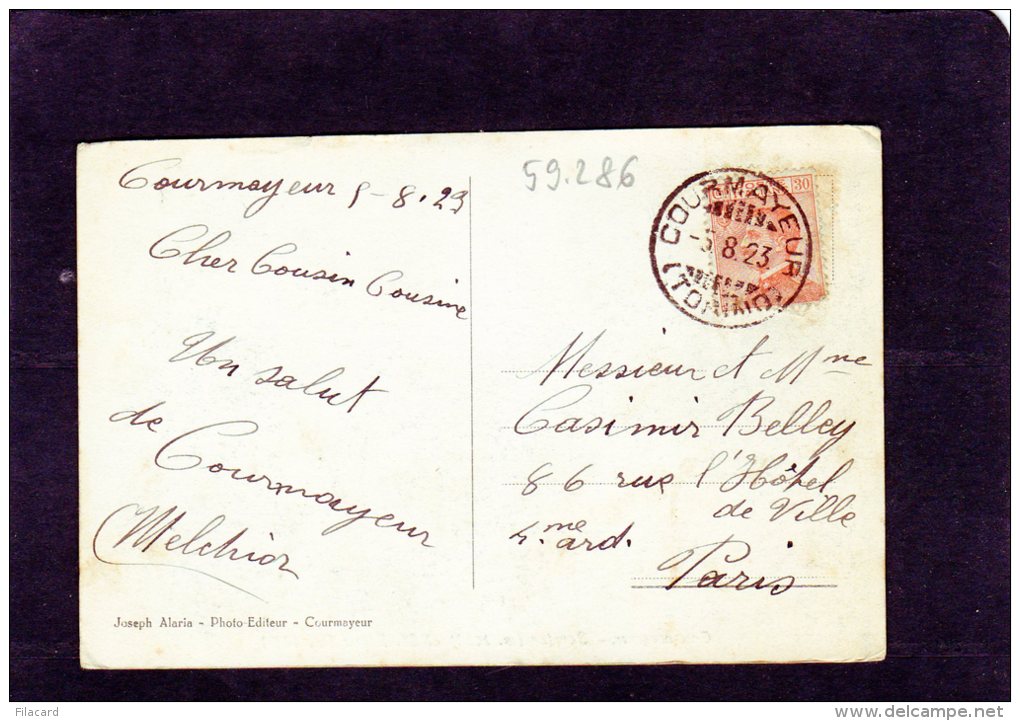 59.286
Courmayeur 5-8.23
Cher Cousin Cousine
Un salut
de
Courmayeur
Melchior
Joseph Alaria - Photo-Editeur - Courmayeur
30
COURMAYEUR
-5.8.23
(TORINO)
Messieur et Mme
Casimir Belley
86 rue l'Hôtel
de Ville
4.me ard.
Paris
Filacard
delcampe.net